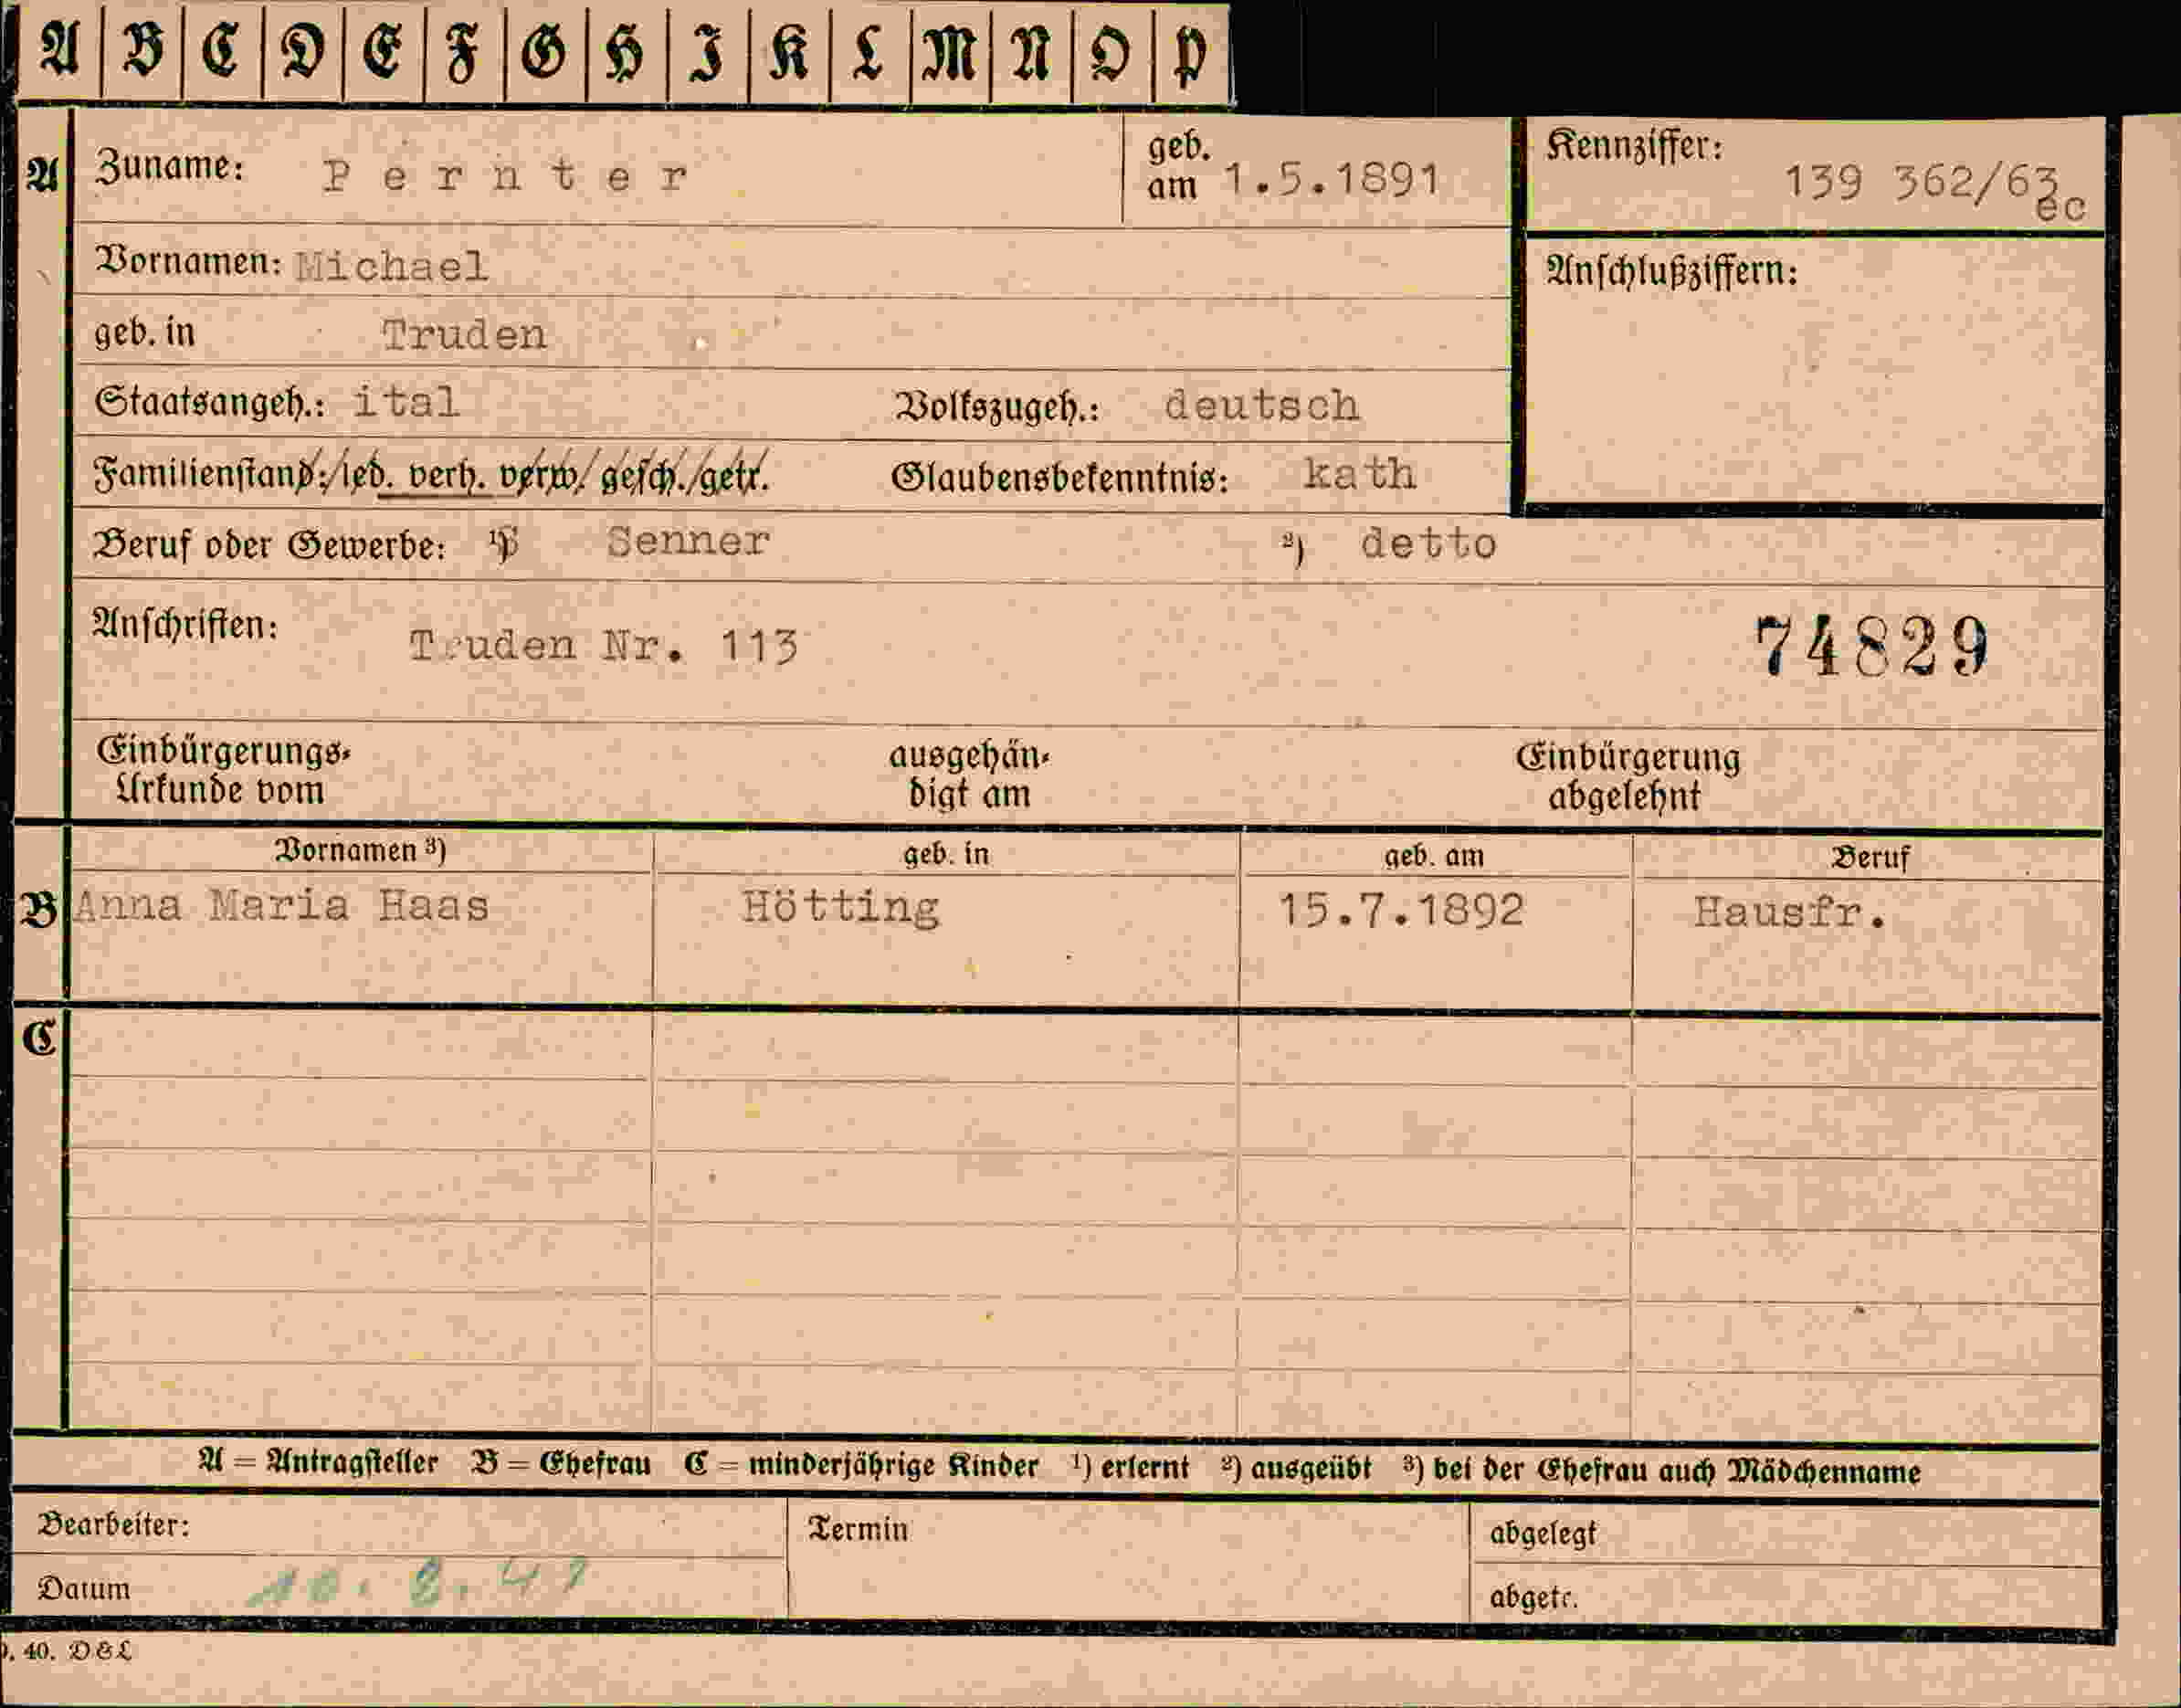 A B C D E F G H I K L M N O P
A Zuname: Pernter geb. am 1.5.1891 Kennziffer: 139 362/63 ec
Vornamen: Michael Anschlußziffern:
geb. in Truden
Staatsangeh.: ital Volkszugeh.: deutsch
Familienstand: led. verh. verw. gesch. getr. Glaubensbekenntnis: kath
Beruf oder Gewerbe: ¹) Senner ²) detto
Anschriften: Truden Nr. 113 74829
Einbürgerungs- ausgehän- Einbürgerung
Urkunde vom digt am abgelehnt
Vornamen ³) geb. in geb. am Beruf
B Anna Maria Haas Hötting 15.7.1892 Hausfr.
C
A = Antragsteller B = Ehefrau C = minderjährige Kinder ¹) erlernt ²) ausgeübt ³) bei der Ehefrau auch Mädchenname
Bearbeiter: Termin abgelegt
Datum abgetr.
40. D&L